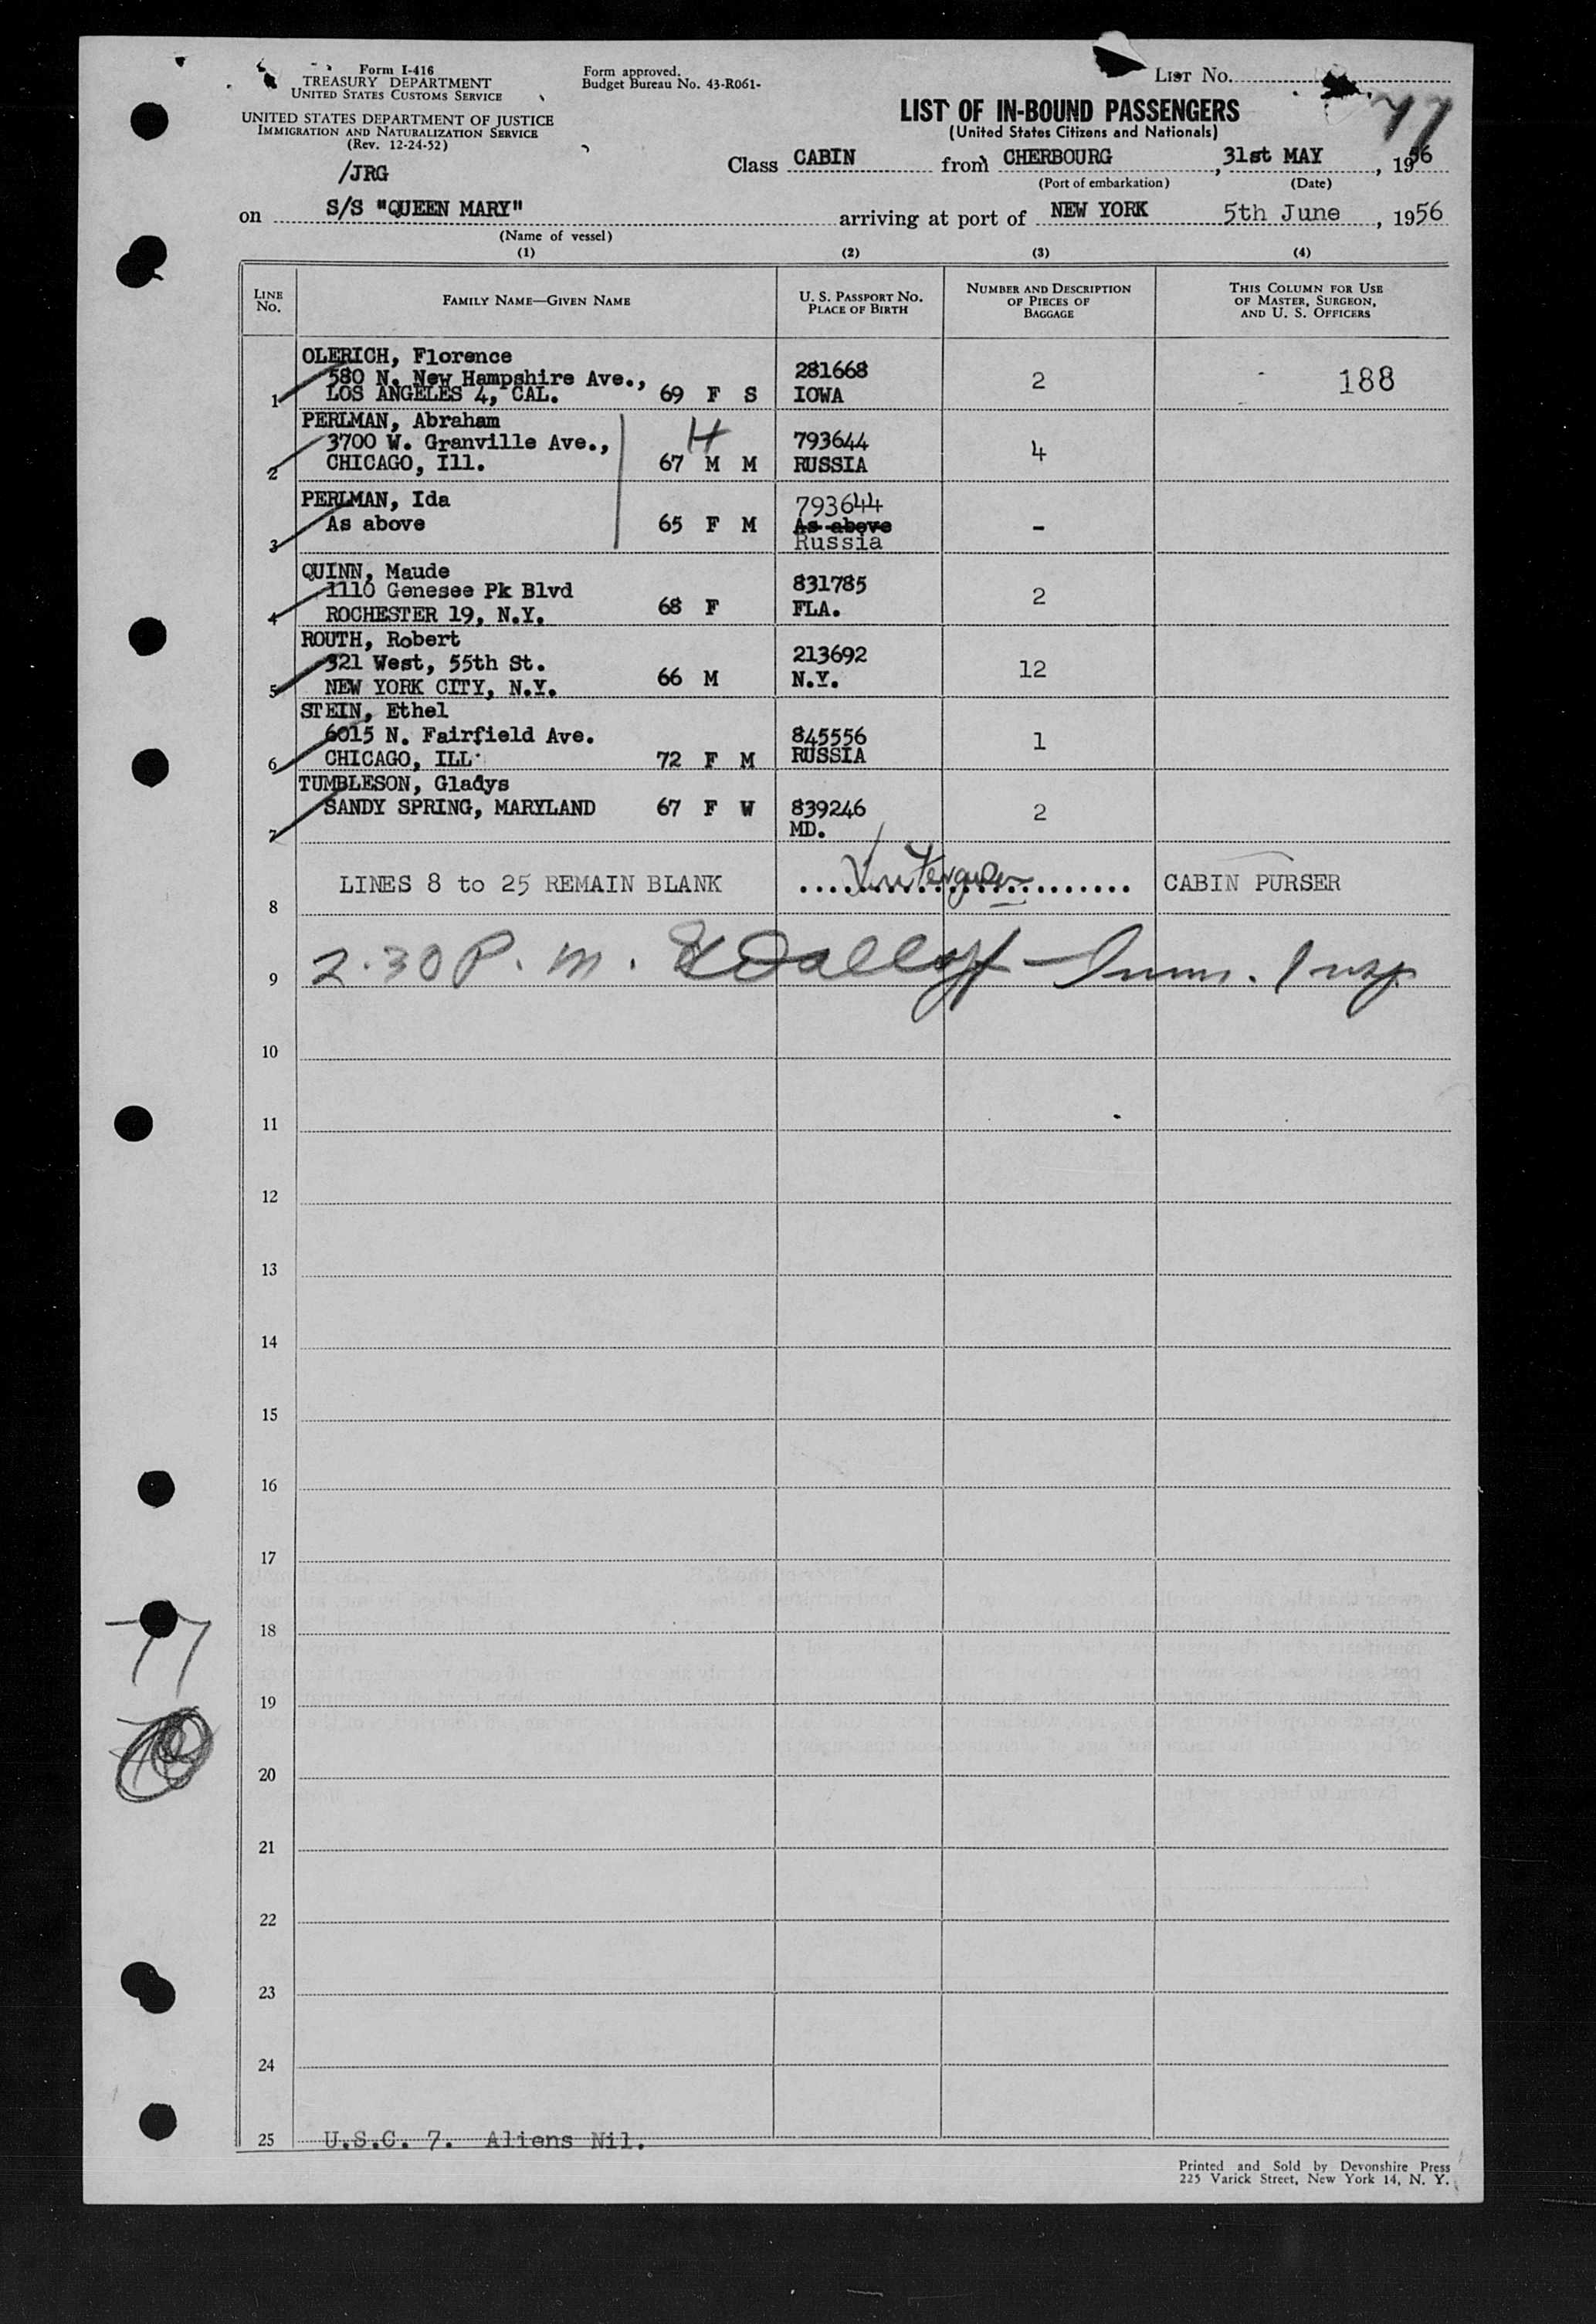 Form I-416
TREASURY DEPARTMENT
UNITED STATES CUSTOMS SERVICE
UNITED STATES DEPARTMENT OF JUSTICE
IMMIGRATION AND NATURALIZATION SERVICE
(Rev. 12-24-52)
/JRG
Form approved.
Budget Bureau No. 43-R061-
LIST No.
77
LIST OF IN-BOUND PASSENGERS
(United States Citizens and Nationals)
Class CABIN from CHERBOURG, 31st MAY, 1956
(Port of embarkation) (Date)
on S/S "QUEEN MARY" arriving at port of NEW YORK 5th June, 1956
(Name of vessel)
(1) (2) (3) (4)
LINE No. FAMILY NAME—GIVEN NAME U. S. PASSPORT NO. PLACE OF BIRTH NUMBER AND DESCRIPTION OF PIECES OF BAGGAGE THIS COLUMN FOR USE OF MASTER, SURGEON, AND U. S. OFFICERS
OLERICH, Florence
580 N. New Hampshire Ave., 281668 2 188
1 LOS ANGELES 4, CAL. 69 F S IOWA
PERLMAN, Abraham H
3700 W. Granville Ave., 793644 4
2 CHICAGO, Ill. 67 M M RUSSIA
PERLMAN, Ida 793644
As above 65 F M As above -
3 Russia
QUINN, Maude
1110 Genesee Pk Blvd 831785 2
4 ROCHESTER 19, N.Y. 68 F FLA.
ROUTH, Robert
321 West, 55th St. 213692 12
5 NEW YORK CITY, N.Y. 66 M N.Y.
STEIN, Ethel
6015 N. Fairfield Ave. 845556 1
6 CHICAGO, ILL. 72 F M RUSSIA
TUMBLESON, Gladys
SANDY SPRING, MARYLAND 67 F W 839246 2
7 MD.
LINES 8 to 25 REMAIN BLANK CABIN PURSER
8
9 2.30 P.m. Imm. Insp
10
11
12
13
14
15
16
17
18
77
19
20
21
22
23
24
25 U.S.C. 7. Aliens Nil.
Printed and Sold by Devonshire Press
225 Varick Street, New York 14, N. Y.